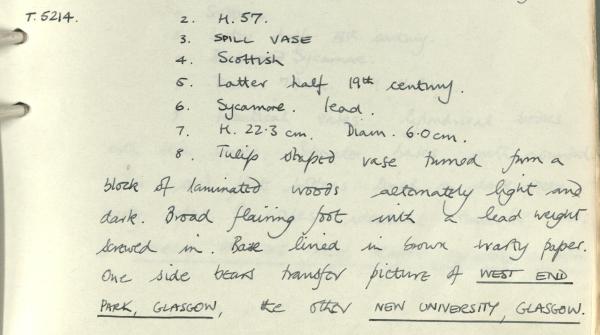 T.5214. 2. H.57.
3. SPILL VASE
4. Scottish
5. Latter half 19th century.
6. Sycamore. lead.
7. H. 22.3 cm. Diam. 6.0cm.
8. Tulip shaped vase turned from a
block of laminated woods alternately light and
dark. Broad flairing foot with a lead weight
screwed in. Base lined in brown warty paper.
One side bears transfer picture of WEST END
PARK, GLASGOW, the other NEW UNIVERSITY, GLASGOW.